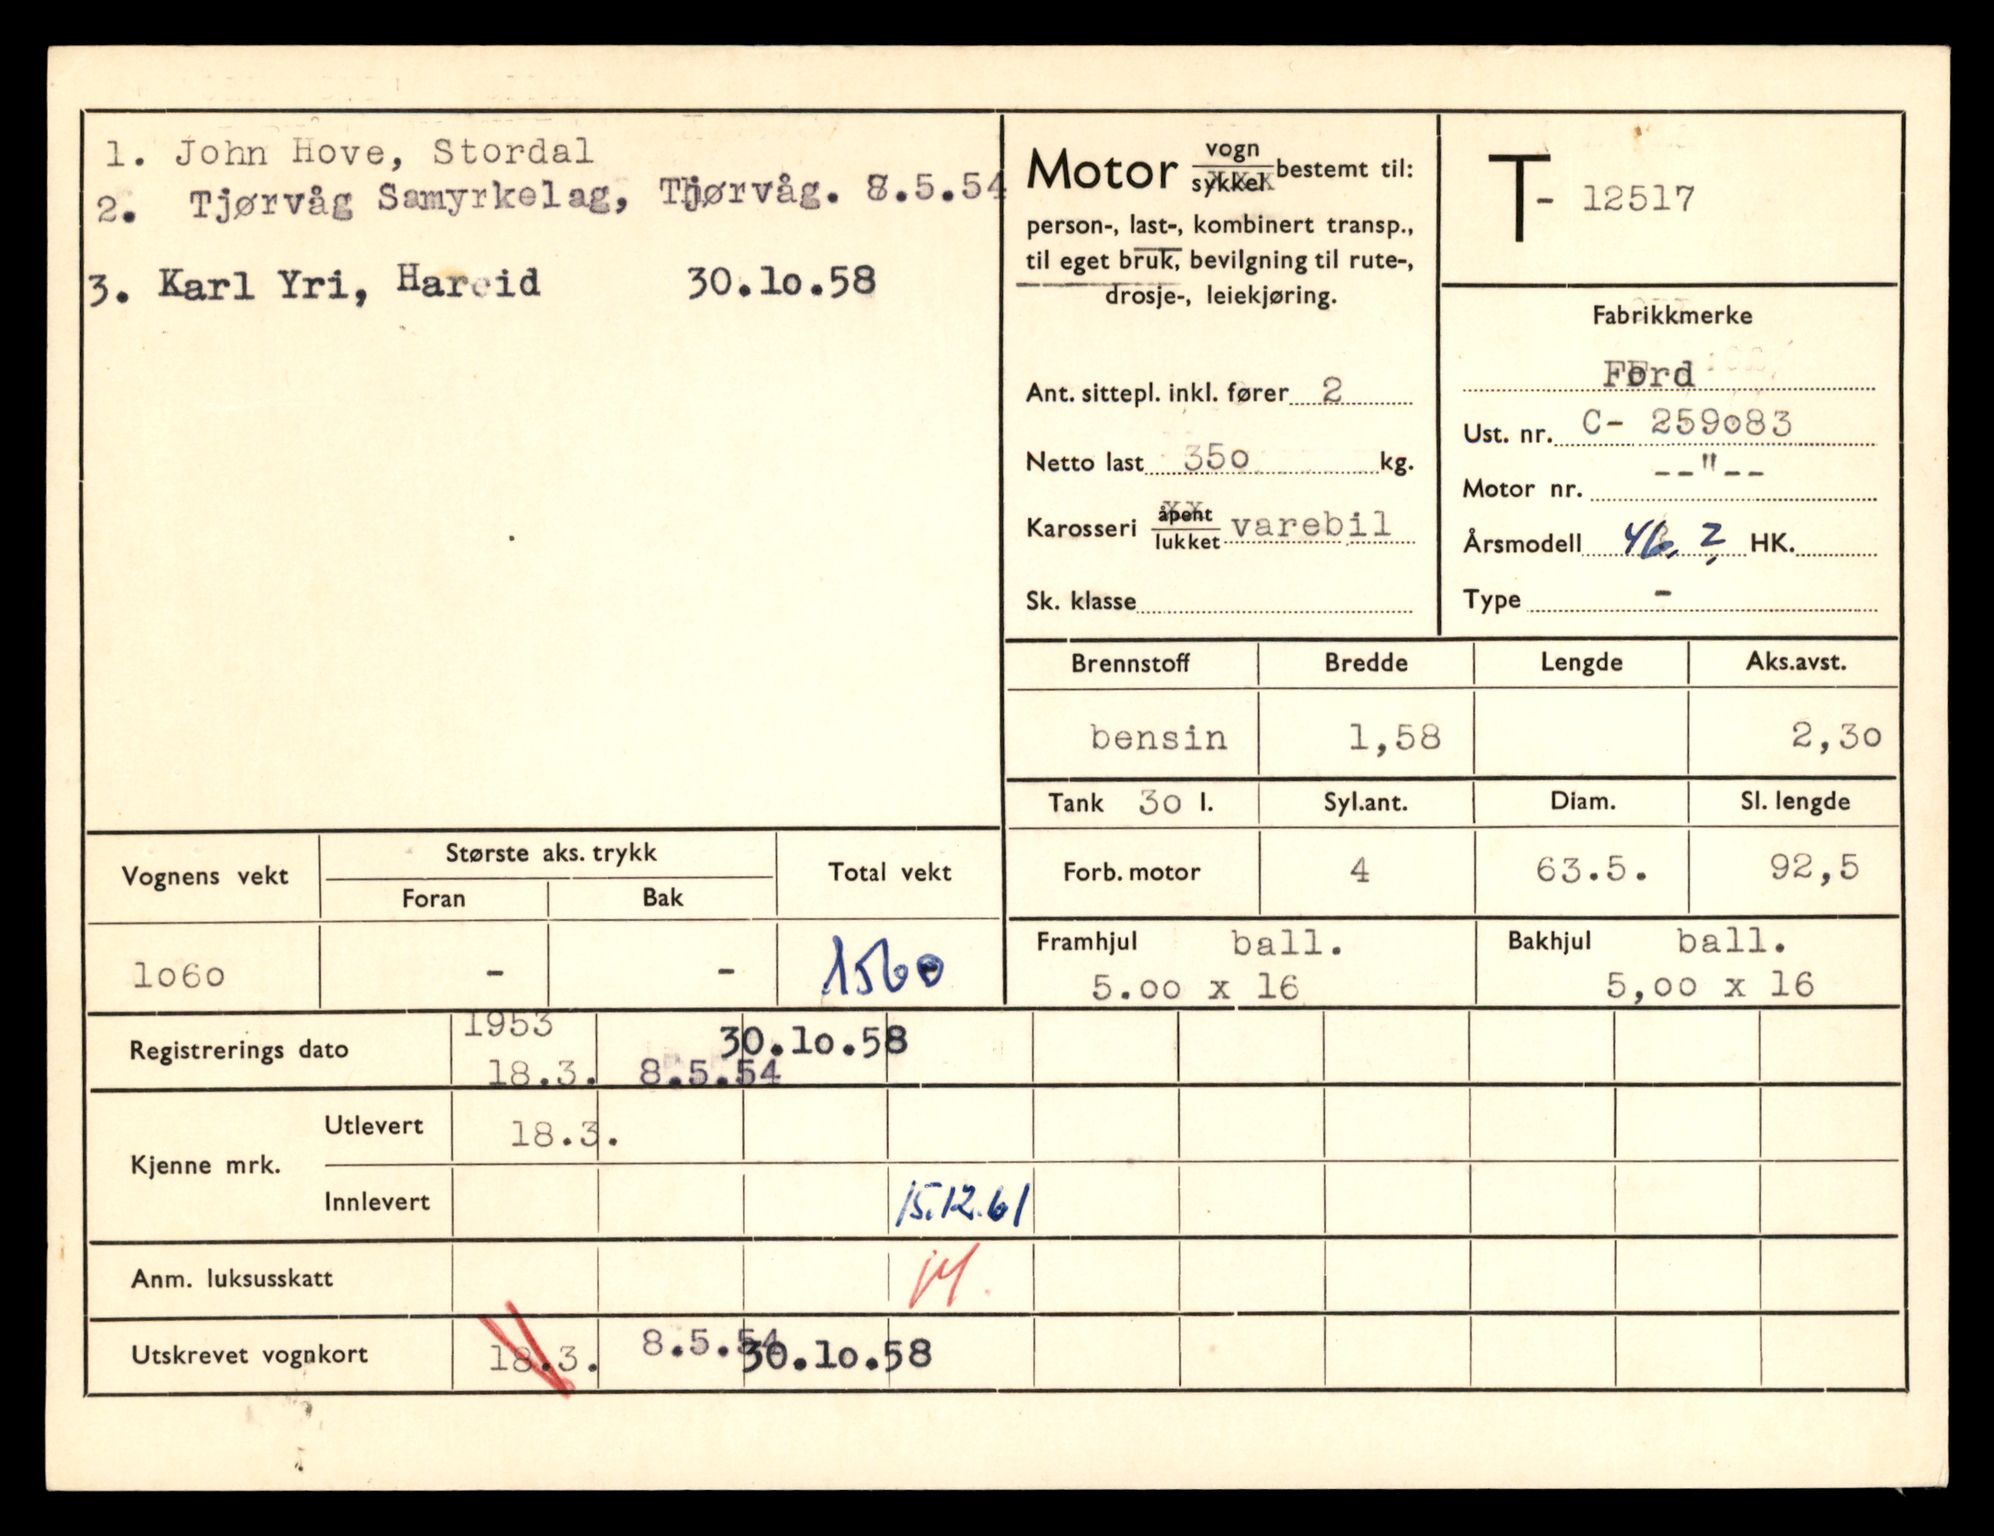 1. John Hove, Stordal
2. Tjørvåg Samyrkelag, Tjørvåg. 8.5.54
3. Karl Yri, Hareid 30.10.58
Motor vogn/sykkel bestemt til:
person-, last-, kombinert transp.,
til eget bruk, bevilgning til rute-,
drosje-, leiekjøring.
Ant. sittepl. inkl. fører 2
Netto last 350 kg.
Karosseri åpent/lukket varebil
Sk. klasse
T- 12517
Fabrikkmerke
Ford
Ust. nr. C- 259083
Motor nr. --"--
Årsmodell 46, ? HK.
Type -
Brennstoff Bredde Lengde Aks.avst.
bensin 1,58 2,30
Tank 30 l. Syl.ant. Diam. Sl. lengde
Forb. motor 4 63.5. 92,5
Framhjul ball. Bakhjul ball.
5.00 x 16 5,00 x 16
Vognens vekt Største aks. trykk Total vekt
Foran Bak
1060 - - 1560
Registrerings dato 1953 30.10.58
18.3. 8.5.54
Kjenne mrk. Utlevert 18.3.
Innlevert 15.12.61
Anm. luksusskatt
Utskrevet vognkort 18.3. 8.5.54 30.10.58